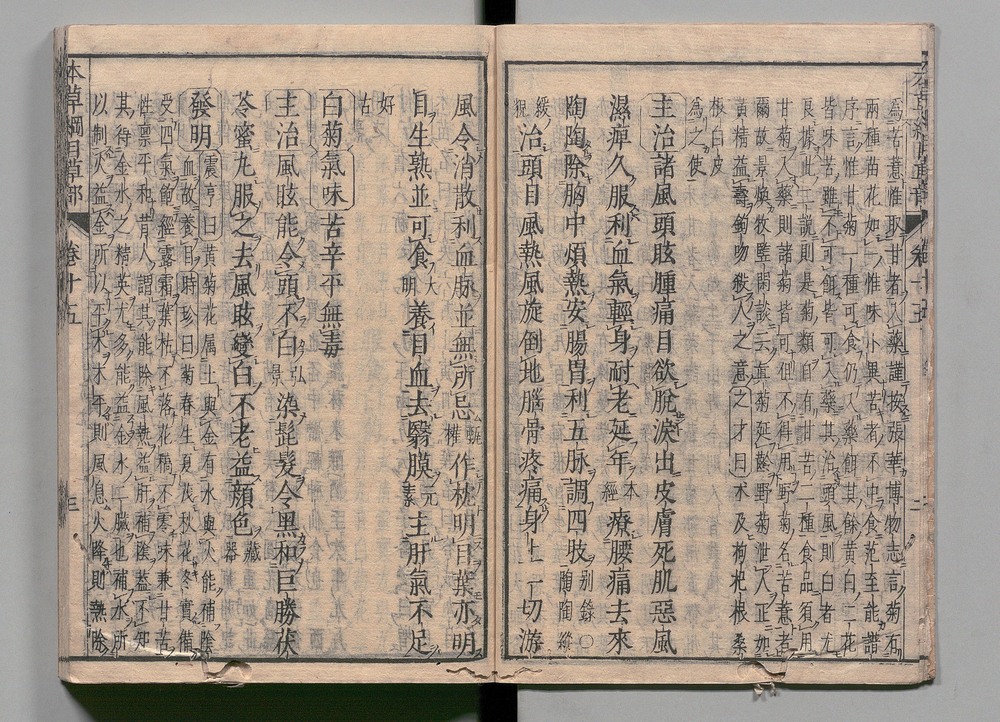 為苦薏惟取甘者入藥謹按張華博物志言菊有
兩種苗花如一惟味小異苦者不中食范至能譜
序言惟甘菊一種可食仍入藥餌其餘黃白二花
皆味苦雖不可餌皆可入藥其治頭風則白者尤
良據此二說則是菊類自有甘苦二種食品須用
甘菊入藥則諸菊皆可但不得用野菊名苦薏者
爾故景煥牧豎閑談云真菊延齡野菊泄人正如
黃精益壽鉤吻殺人之意之才曰朮及枸杞根桑
根白皮
為之使
主治諸風頭眩腫痛目欲脫淚出皮膚死肌惡風
濕痺久服利血氣輕身耐老延年本經療腰痛去來
陶陶除胸中煩熱安腸胃利五脉調四肢別錄〇陶陶縱
緩皃治頭目風熱風旋倒地腦骨疼痛身上一切游
風令消散利血脉並無所忌甄權作枕明目葉亦明
目生熟並可食大明養目血去翳膜元素主肝氣不足
好古
白菊氣味苦辛平無毒
主治風眩能令頭不白弘景染髭髮令黑和巨勝茯
苓蜜丸服之去風眩變白不老益顏色藏器
發明震亨曰黃菊花屬土與金有水與火能補陰
血故養目時珍曰菊春生夏茂秋花冬實備
受四氣飽經露霜葉枯不落花槁不零味兼甘苦
性稟平和昔人謂其能除風熱益肝補陰蓋不知
其得金水之精英尤多能益金水二臟也補水所
以制火益金所以平木木平則風息火降則熱除
本草綱目草部 卷十五 三